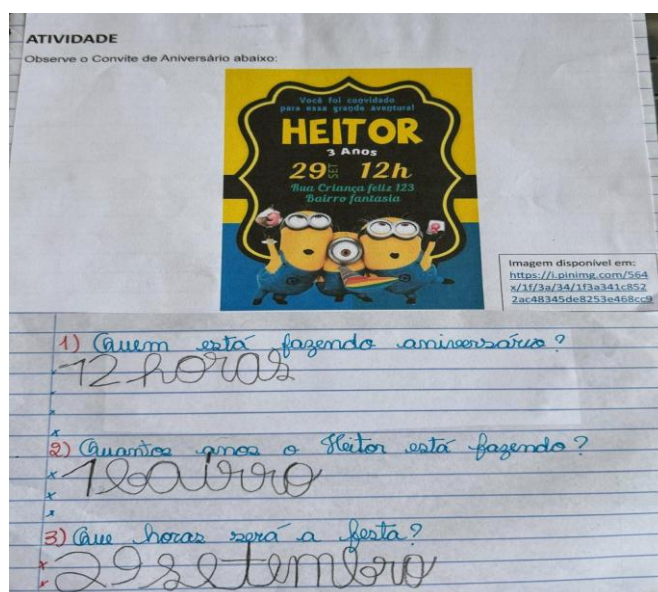 ATIVIDADE
Observe o Convite de Aniversário abaixo:
Você foi convidado
para essa grande aventura!
HEITOR
3 Anos
29 SET 12h
Rua Criança feliz 123
Bairro fantasia
Imagem disponível em:
https://i.pinimg.com/564
x/1f/3a/34/1f3a341c852
2ac48345de8253e468cc9
1) Quem está fazendo aniversário?
12 horas
2) Quantos anos o Heitor está fazendo?
1 bairro
3) Que horas será a festa?
29 setembro